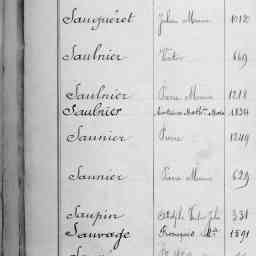 Sauguéret Julien Marie 1012
Saulnier Victor 669
Saulnier Pierre Marie 1218
Saulnier 1834
Saunier Pierre 1249
Saunier Pierre Marie 629
Saupin 331
Sauvage François 1891